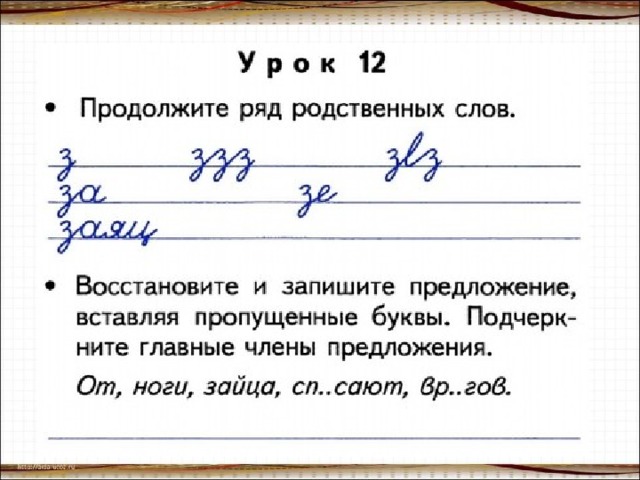 Урок 12
• Продолжите ряд родственных слов.
з ззз злз
за зе
заяц
• Восстановите и запишите предложение,
вставляя пропущенные буквы. Подчерк-
ните главные члены предложения.
От, ноги, зайца, сп..сают, вр..гов.